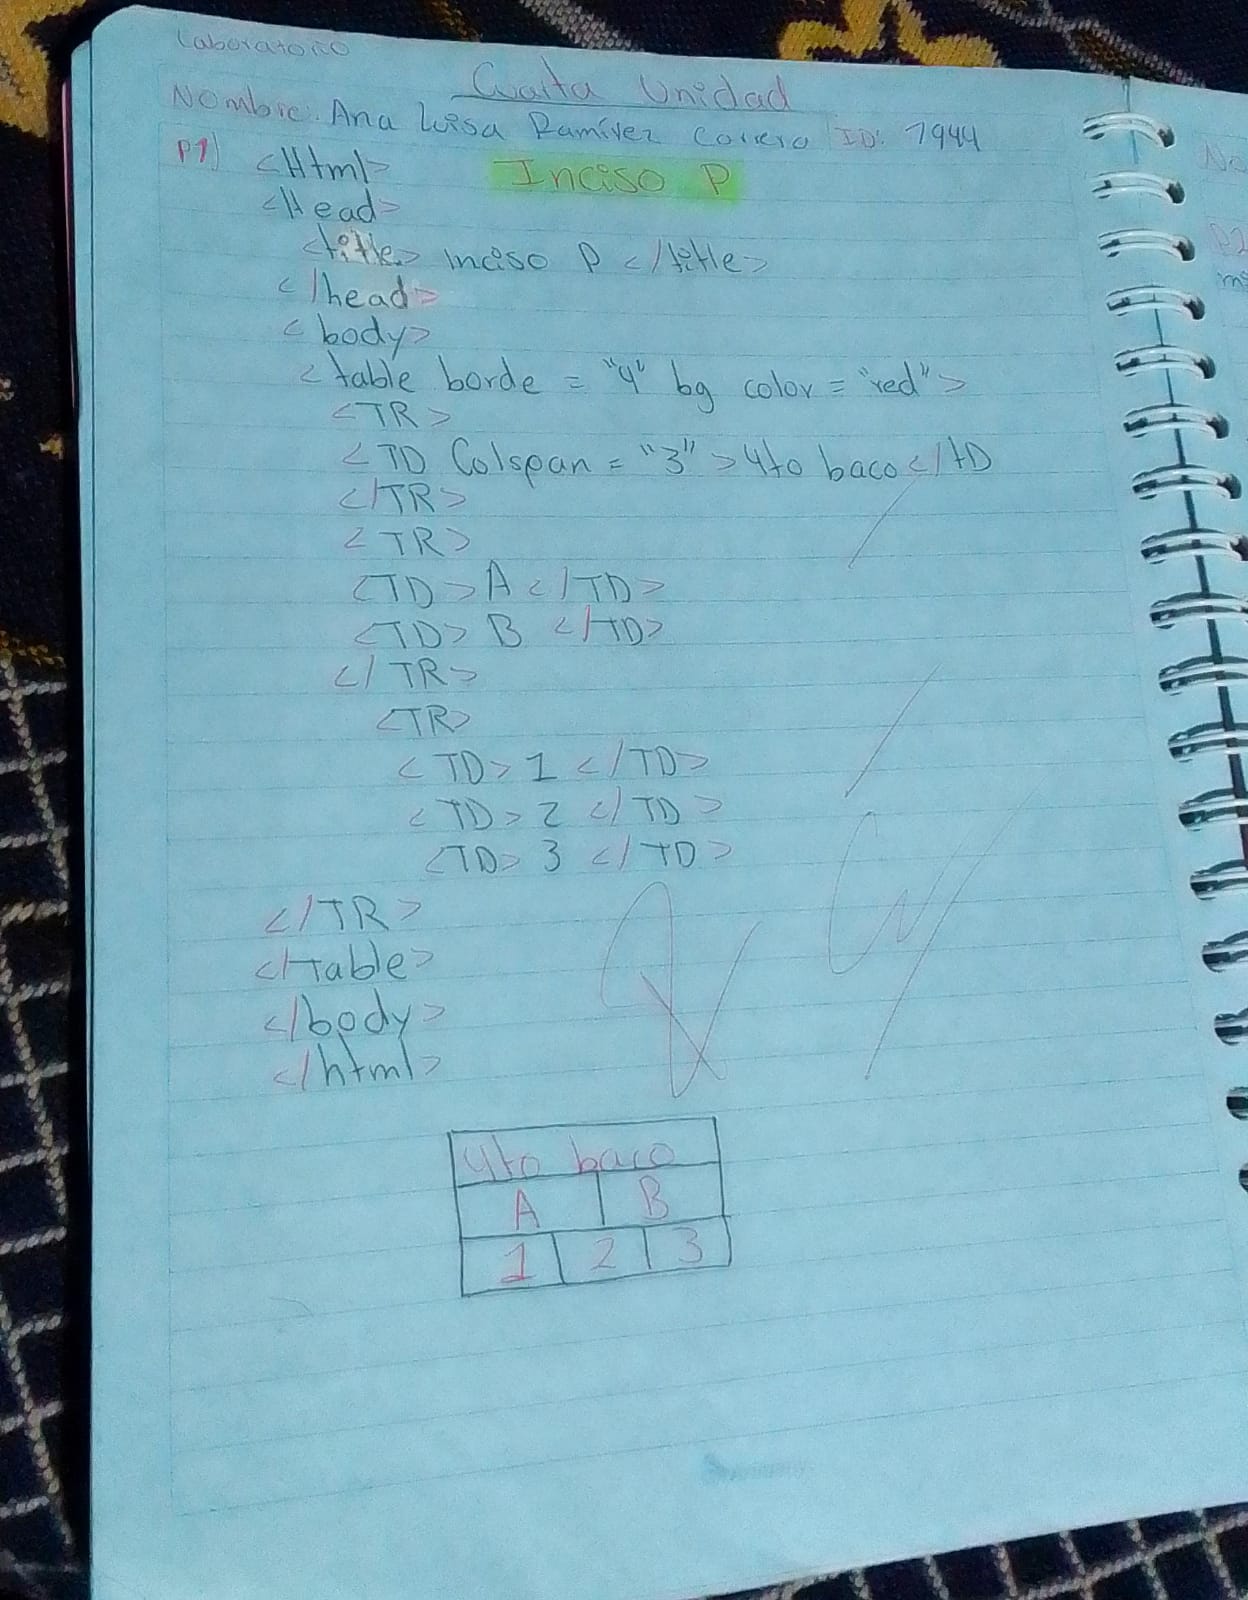 Laboratorio
Cuarta Unidad
Nombre: Ana Luisa Ramírez Correro ID: 7944
P1) <Html> Inciso P
<Head>
<title> Inciso P </title>
</head>
<body>
<table borde = "4" bg color = "red">
<TR>
<TD Colspan = "3" > 4to baco </tD
</TR>
<TR>
<TD> A </TD>
<TD> B </TD>
</TR>
<TR>
<TD> 1 </TD>
<TD> 2 </TD>
<TD> 3 </TD>
</TR>
</Table>
</body>
</html>
4to baco
A B
1 2 3